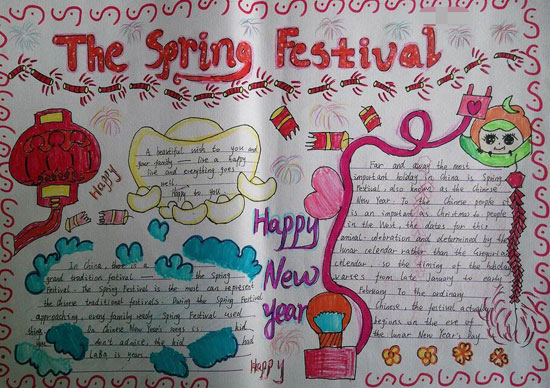 The Spring Festival
A beautiful wish to you and
your family —— live a happy
live and everything goes
well.
Happy to you
Happy
Happy
New
year
Happy
In China, there is a
grand tradition fetival the Spring
Festival. The Spring Festival is the most can represent
the Chinese traditional festivals. During the Spring Festival
approaching, every family ready Spring Festival used
things. In Chinese New Year's in kid
don't admire, the kid had
LaBa is year.
Far and away the most
important holiday in China is Spring
Festival, also known as the Chinese
New Year. To the Chinese people it
is an important as Christmas to people
in the West. the dates for this
annual celebration and determined by the
lunar calendar rather than the Gregorian
calendar, so the timing of the holiday
varies from late January to early
February. To the ordinary
Chinese, the festival actually
begins on the eve of
the lunar New Year's Day